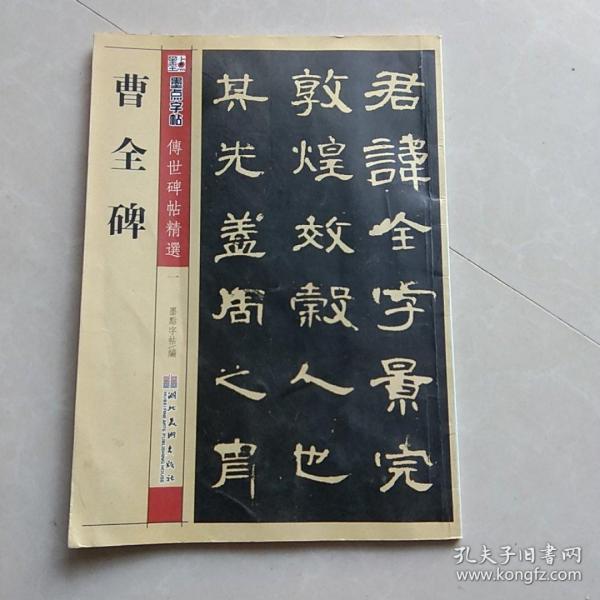 曹全碑
墨点字帖
傳世碑帖精選
一
墨點字帖/編
湖北美術出版社
HUBEI FINE ARTS PUBLISHING HOUSE
君諱全字景完
敦煌效穀人也
其先蓋周之胄
孔夫子旧书网
www.kongfz.com